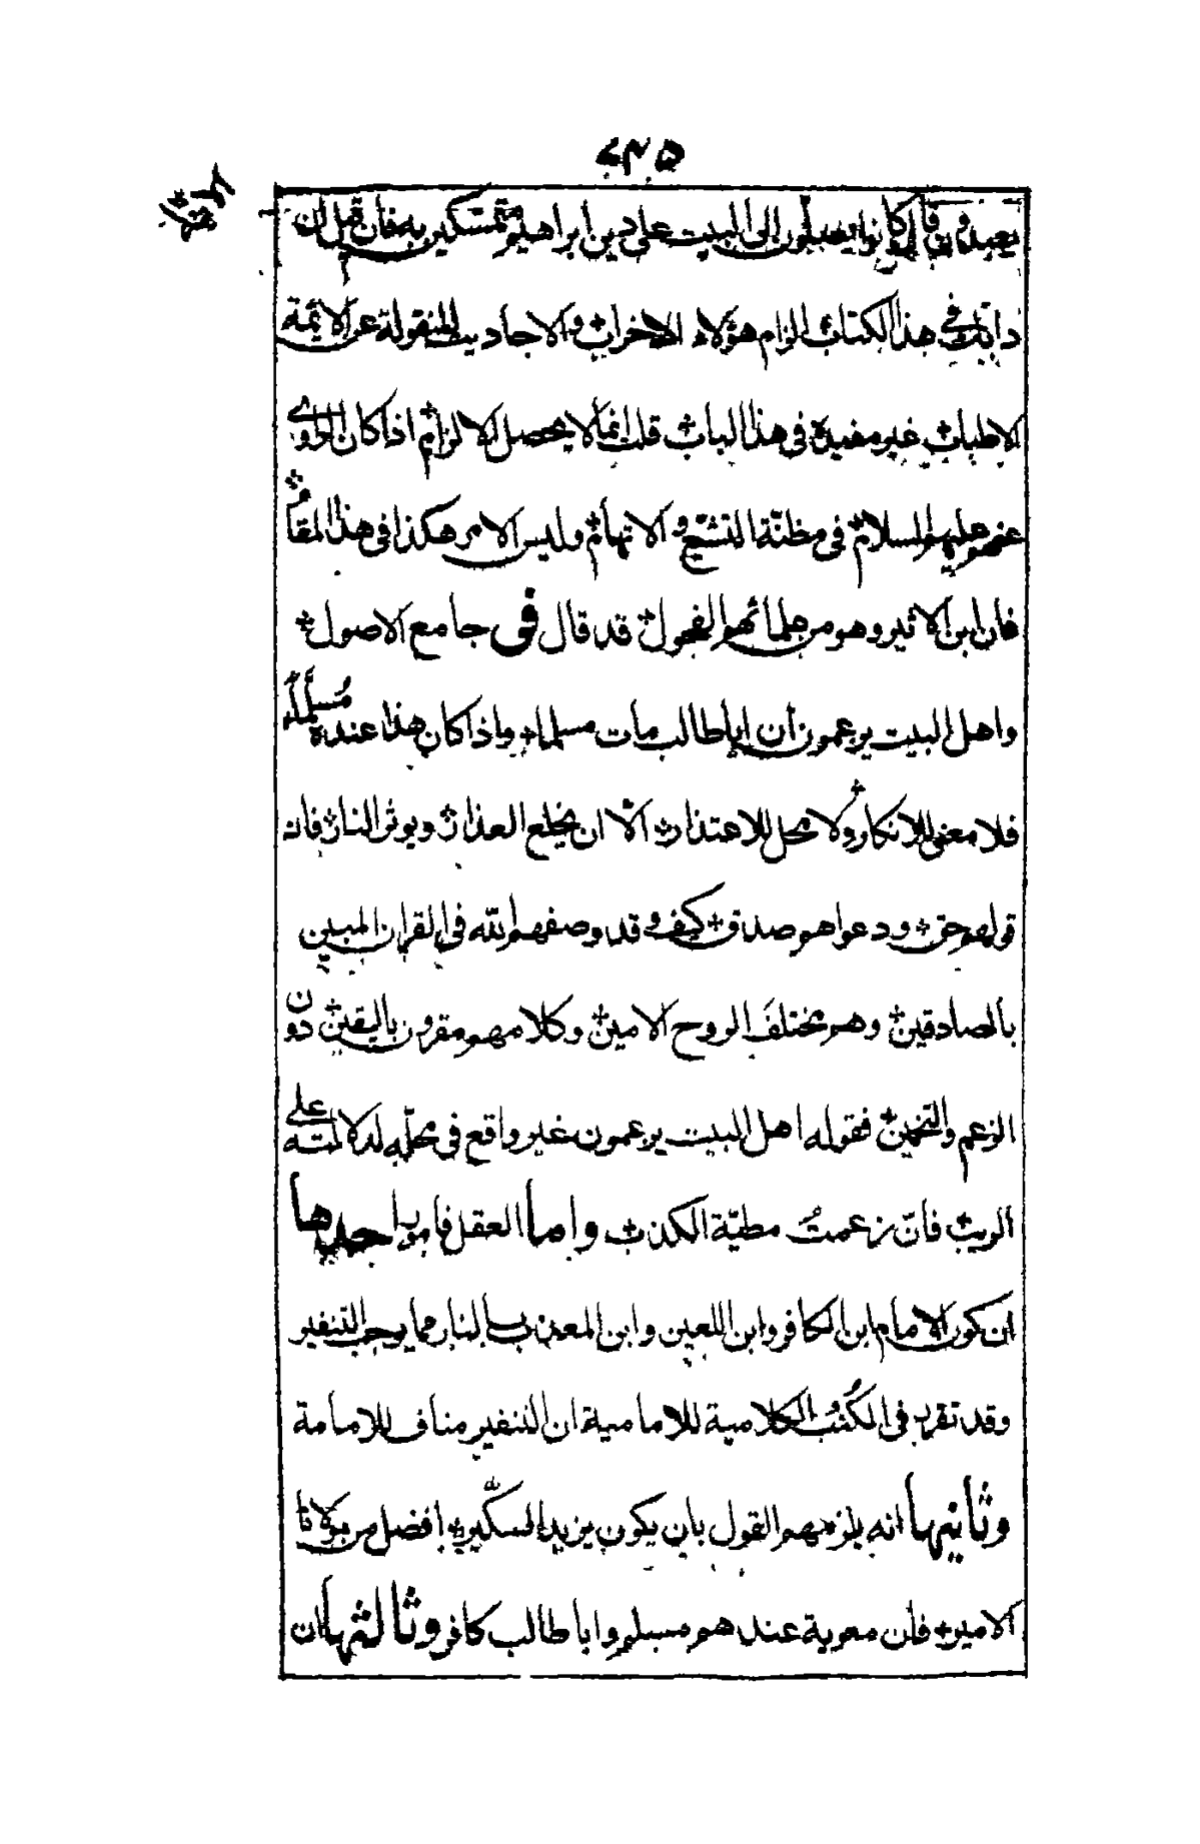 ٢٣٥
يعبدون قال كانوا يصلون الى البيت على دين ابراهيم متمسكين به فان قيل ان
دابك في هذا الكتاب الزام هؤلاء الاخراب والاحاديث المنقولة عن الائمة
الاطياب غير مفيدة فى هذا الباب قلت انما لا يحصل الالزام اذا كان الراوي
عنهم عليهم السلام فى مظنة التشيع والاتهام وليس الامر هكذا فى هذا المقام
فان ابن الاثير وهو من علمائهم الفحول قد قال فى جامع الاصول
واهل البيت يزعمون ان ابا طالب مات مسلما واذا كان هذا عنده مُسلَّماً
فلا معنى للانكار ولا محل للاعتذار الّا ان يخلع العذار ويوثر النار فان
قولهم حق ودعواهم صدق كيف وقد وصفهم الله فى القران المبين
بالصادقين وهم مختلفَ الروح الامين وكلامهم مقرون باليقين دون
الزعم والتخمين فقوله اهل البيت يزعمون غير واقع فى محلّه لدلالته على
الريب فانّ زعمتُ مطيّة الكذب واما العقل فامور احدها
ان كون الامام ابن الكافر وابن اللعين وابن المعذب بالنار مما يوجب التنفير
وقد تقرر فى الكُتُب الكلامية للامامية ان التنفير مناف للامامة
وثانيها انه يلزمهم القول بان يكون يزيد السكّير افضل من مولانا
الامير فان معوية عندهم مسلم وابا طالب كافر وثالثها ان